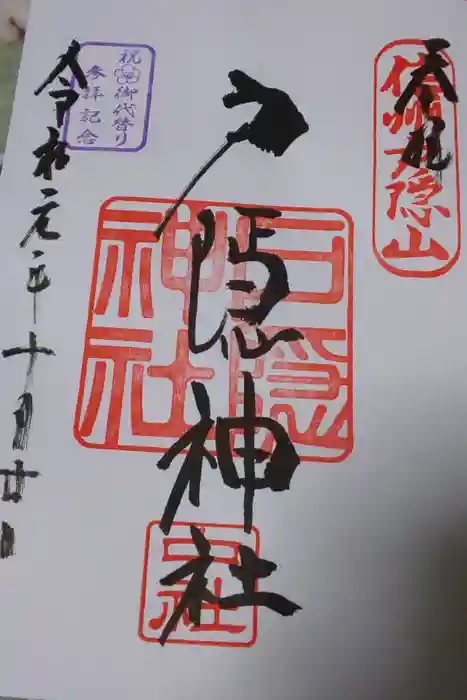 奉拝
信州戸隠山
戸隠神社
戸隠神社
中社
祝御代替り
参拝記念
令和元年十月廿日